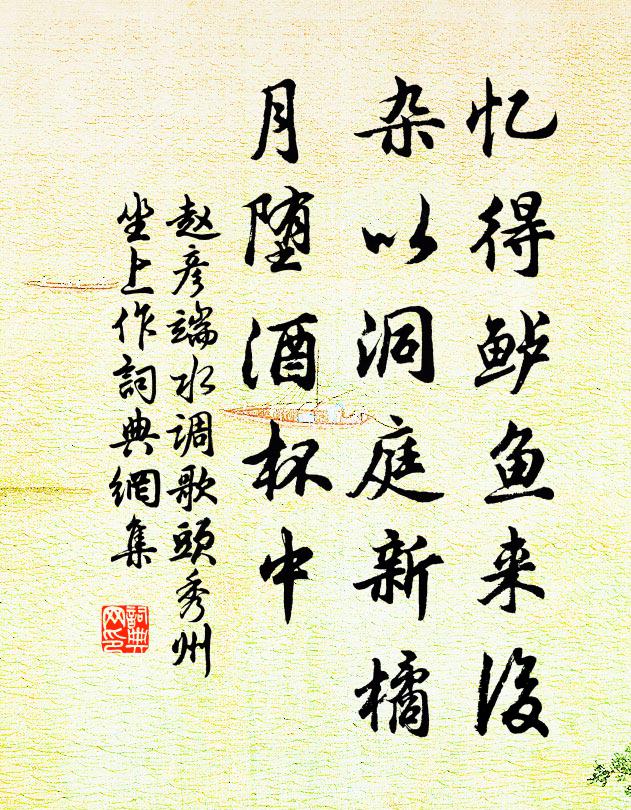 忆得鲈鱼来后
杂以洞庭新橘
月堕酒杯中
赵彦端水调歌头秀州
坐上作词典網集
詞典
网印